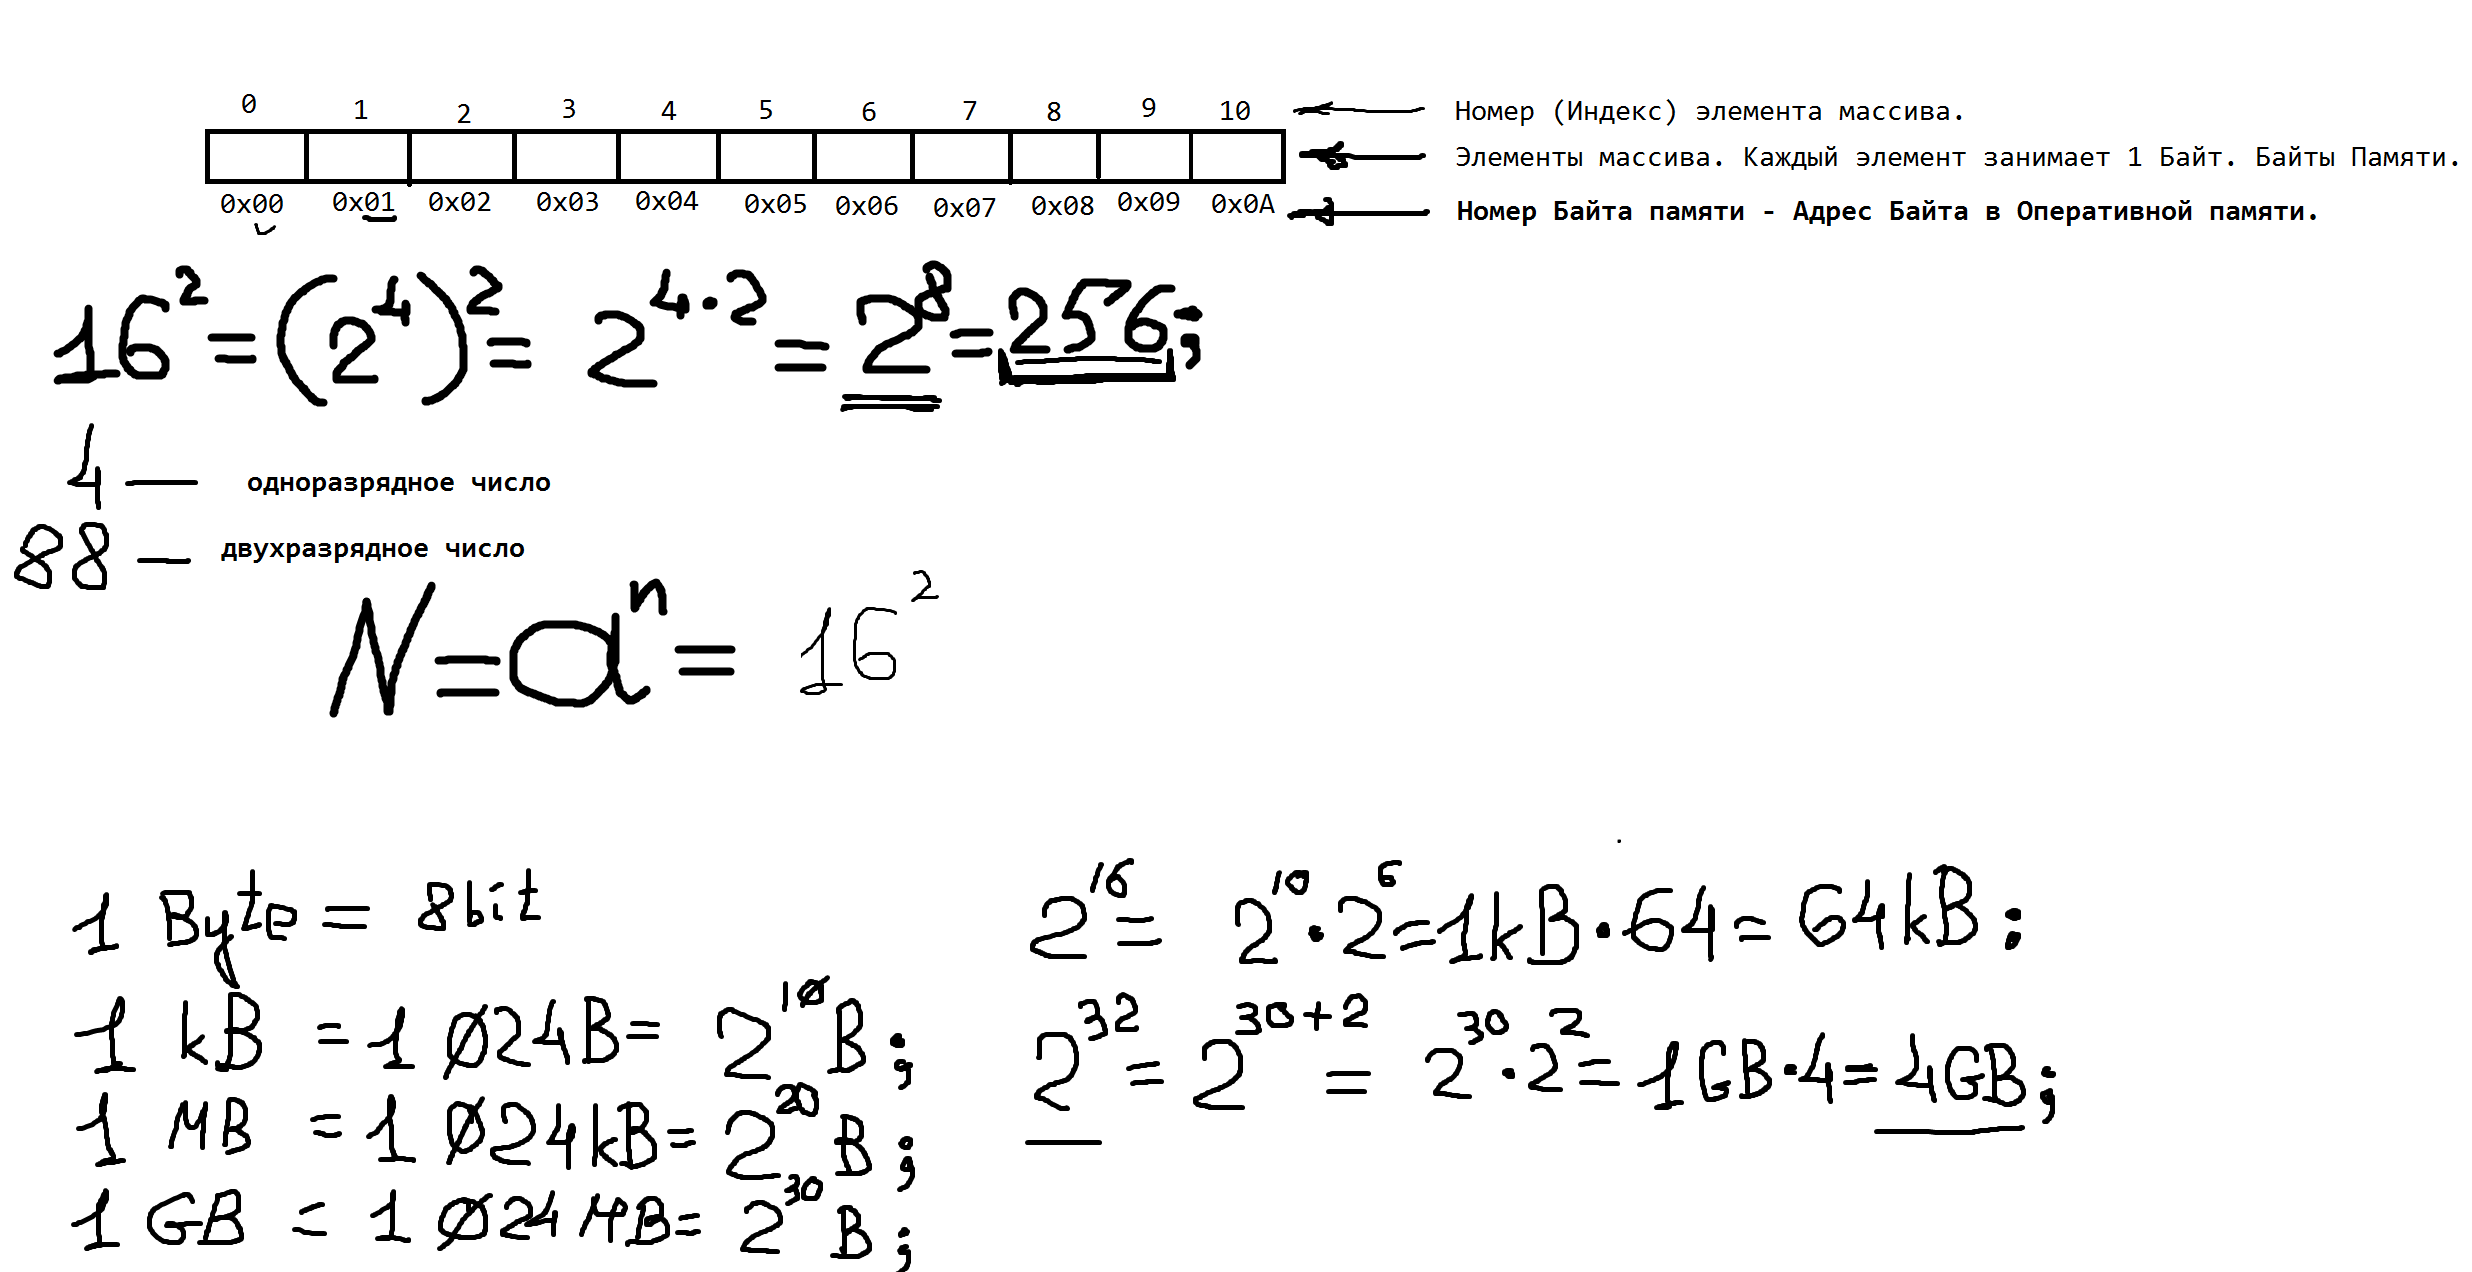 0 1 2 3 4 5 6 7 8 9 10 Номер (Индекс) элемента массива.
Элементы массива. Каждый элемент занимает 1 Байт. Байты Памяти.
0x00 0x01 0x02 0x03 0x04 0x05 0x06 0x07 0x08 0x09 0x0A Номер Байта памяти - Адрес Байта в Оперативной памяти.
16² = (2⁴)² = 2⁴·² = 2⁸ = 256;
4 — одноразрядное число
88 — двухразрядное число
N = aⁿ = 16²
1 Byte = 8bit
1 kB = 1 024B = 2¹⁰B;
1 MB = 1 024kB = 2²⁰B;
1 GB = 1 024MB = 2³⁰B;
2¹⁶ = 2¹⁰·2⁶ = 1kB·64 = 64kB;
2³² = 2³⁰⁺² = 2³⁰·2² = 1GB·4 = 4GB;